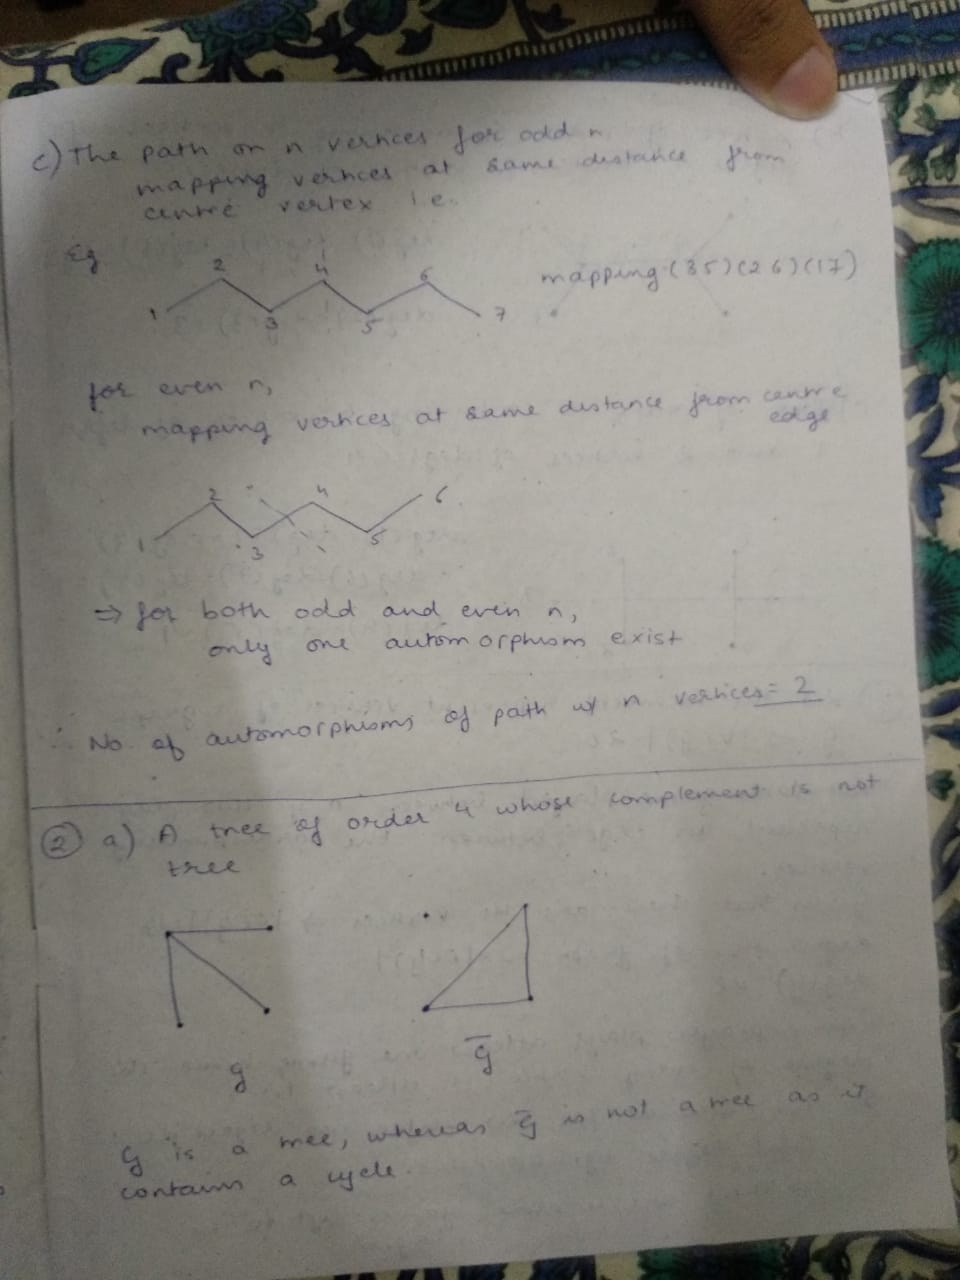 c) The path on n vertices for odd n
mapping vertices at same distance from
centre vertex i.e.
Eg
1 2 3 4 5 6 7
mapping (35)(26)(17)
for even n,
mapping vertices at same distance from centre
edge
1 2 3 4 5 6
⇒ for both odd and even n,
only one automorphism exist
∴ No. of automorphisms of path w/ n vertices = 2
② a) A tree of order 4 whose complement is not
tree
G
G̅
G is a tree, whereas G̅ is not a tree as it
contains a cycle.